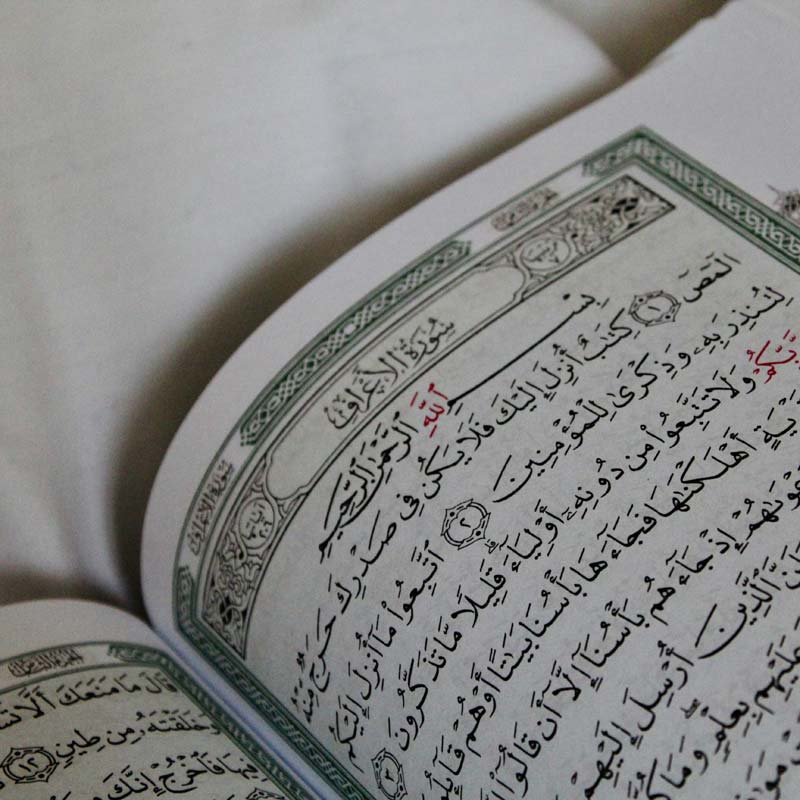 سُورَةُ الأَعْرَافِ
سُورَةُ الأَعْرَافِ
بِسْمِ ٱللَّهِ ٱلرَّحْمَٰنِ ٱلرَّحِيمِ
الٓمٓصٓ ١ كِتَٰبٌ أُنزِلَ إِلَيْكَ فَلَا يَكُن فِى صَدْرِكَ حَرَجٌ مِّنْهُ
لِتُنذِرَ بِهِۦ وَذِكْرَىٰ لِلْمُؤْمِنِينَ ٢ ٱتَّبِعُوا۟ مَآ أُنزِلَ إِلَيْكُم
رَّبِّكُمْ وَلَا تَتَّبِعُوا۟ مِن دُونِهِۦٓ أَوْلِيَآءَ ۗ قَلِيلًا مَّا تَذَكَّرُونَ ٣
قَرْيَةٍ أَهْلَكْنَٰهَا فَجَآءَهَا بَأْسُنَا بَيَٰتًا أَوْ هُمْ قَآئِلُونَ
دَعْوَىٰهُمْ إِذْ جَآءَهُم بَأْسُنَآ إِلَّآ أَن قَالُوٓا۟
ٱلَّذِينَ أُرْسِلَ إِلَيْهِمْ
عَلَيْهِم بِعِلْمٍ ۖ وَمَا كُنَّا
قَالَ مَا مَنَعَكَ أَلَّا
خَلَقْتَهُۥ مِن طِينٍ ١٢
فِيهَا فَٱخْرُجْ إِنَّكَ